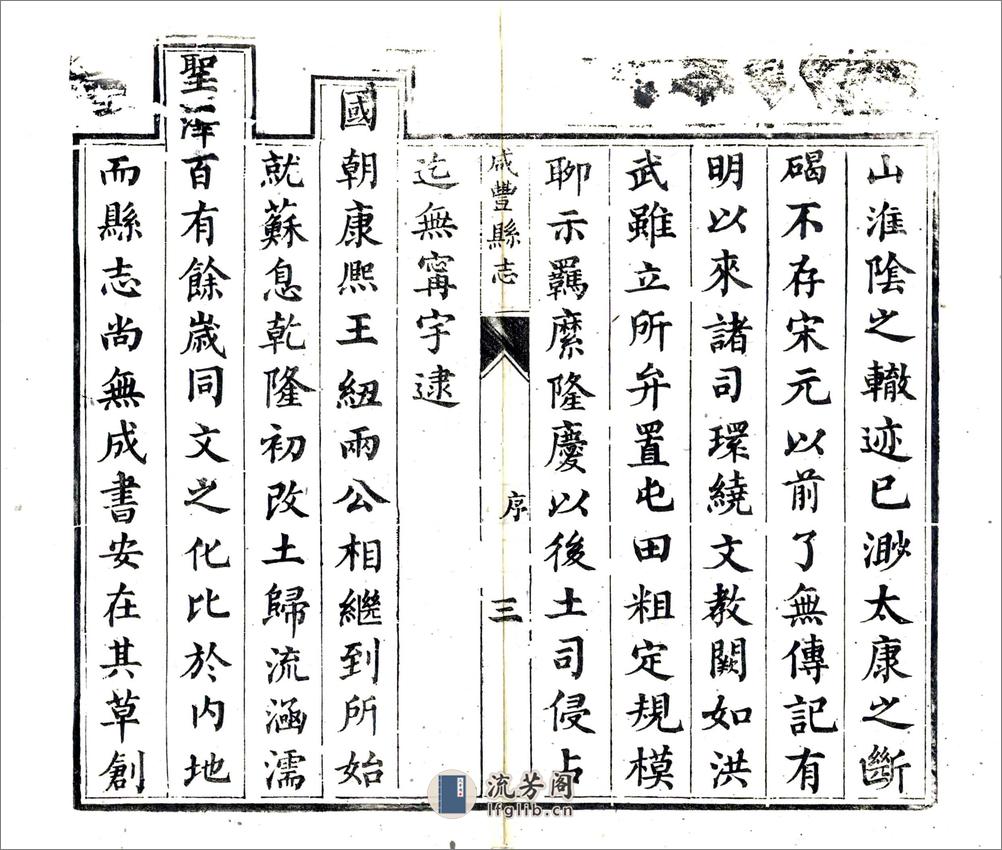 山淮陰之轍迹已渺太康之斷
碣不存宋元以前了無傳記有
明以來諸司環繞文教闕如洪
武雖立所弁置屯田粗定規模
聊示羈縻隆慶以後土司侵占
迄無寗宇逮
咸豐縣志
序
三
國朝康熙王紐兩公相繼到所始
就蘇息乾隆初改土歸流涵濡
聖澤百有餘歲同文之化比於內地
而縣志尚無成書安在其草創
流芳阁
lfglib.cn